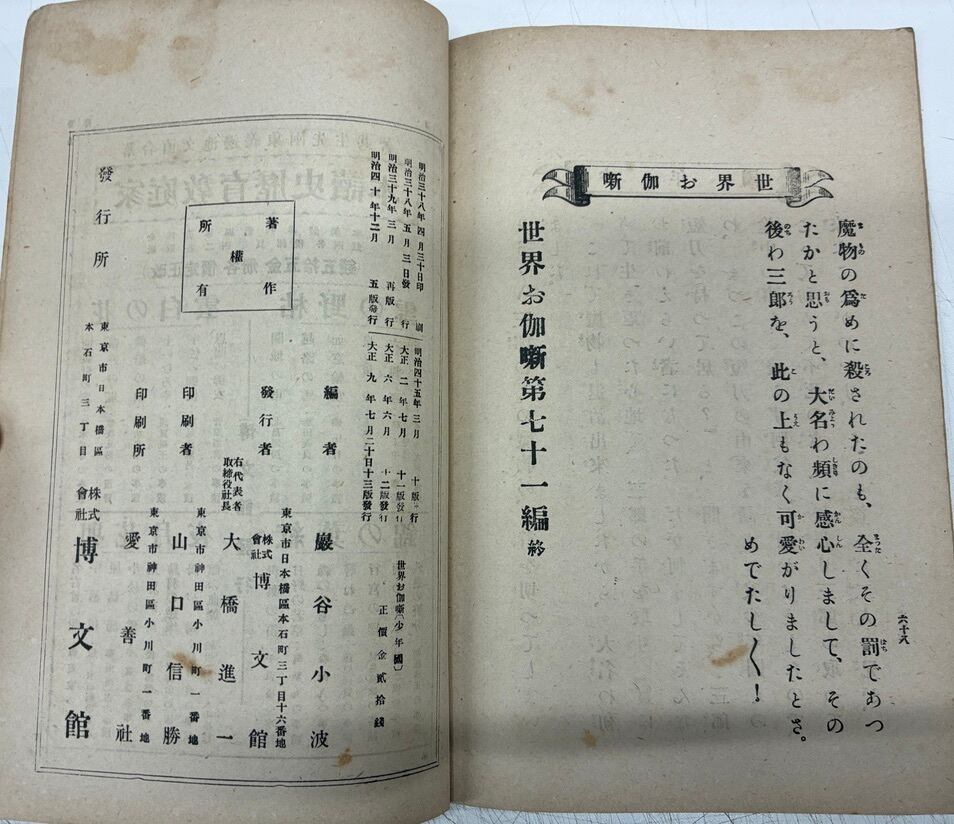 世界お伽噺
魔物の爲めに殺されたのも、全くその罰であつ
たかと思うと、大名わ頻に感心しまして、その
後わ三郎を、此の上もなく可愛がりましたとさ。
めでたし〱！
世界お伽噺第七十一編 終
六十八
明治三十八年四月三十日印刷
明治三十八年五月三日發行
明治三十九年三月再版行
明治四十年十二月五版發行
明治四十五年三月十版發行
大正二年七月十一版發行
大正六年六月十二版發行
大正九年七月二十日十三版發行
世界お伽噺(少年國)
正價金貳拾錢
著作權所有
編者 巖谷小波
東京市日本橋區本石町三丁目十六番地
發行者 株式會社 博文館
右代表者取締役社長 大橋進一
東京市神田區小川町一番地
印刷者 山口信勝
東京市神田區小川町一番地
印刷所 愛善社
發行所
東京市日本橋區
本石町三丁目
株式會社 博文館